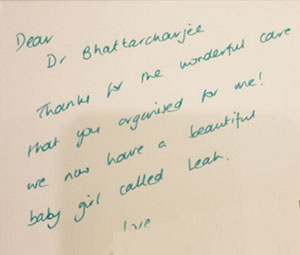 Dear
Dr Bhattarcharjee
Thanks for the wonderful care
that you organised for me!
we now have a beautiful
baby girl called Leah.